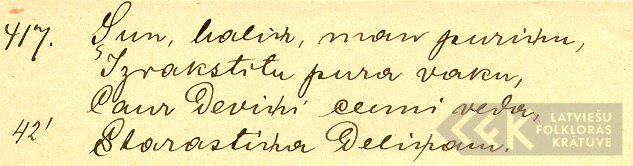 417. Šun, balin, man puriņu,
Izrakstitu pura vaku,
Caur Deviņi cemi veda,
42' Starastiņa Deliņam.
LATVIEŠU
FOLKLORAS
KRĀTUVE